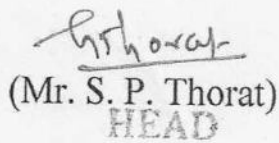 (Mr. S. P. Thorat)
HEAD